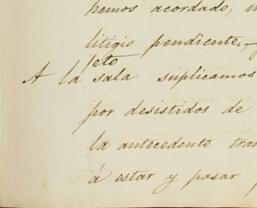 hemos acordado,
litigio pendiente,
jeto
A la sala suplicamos
por desistidos de
la antecedente
á estar y pasar